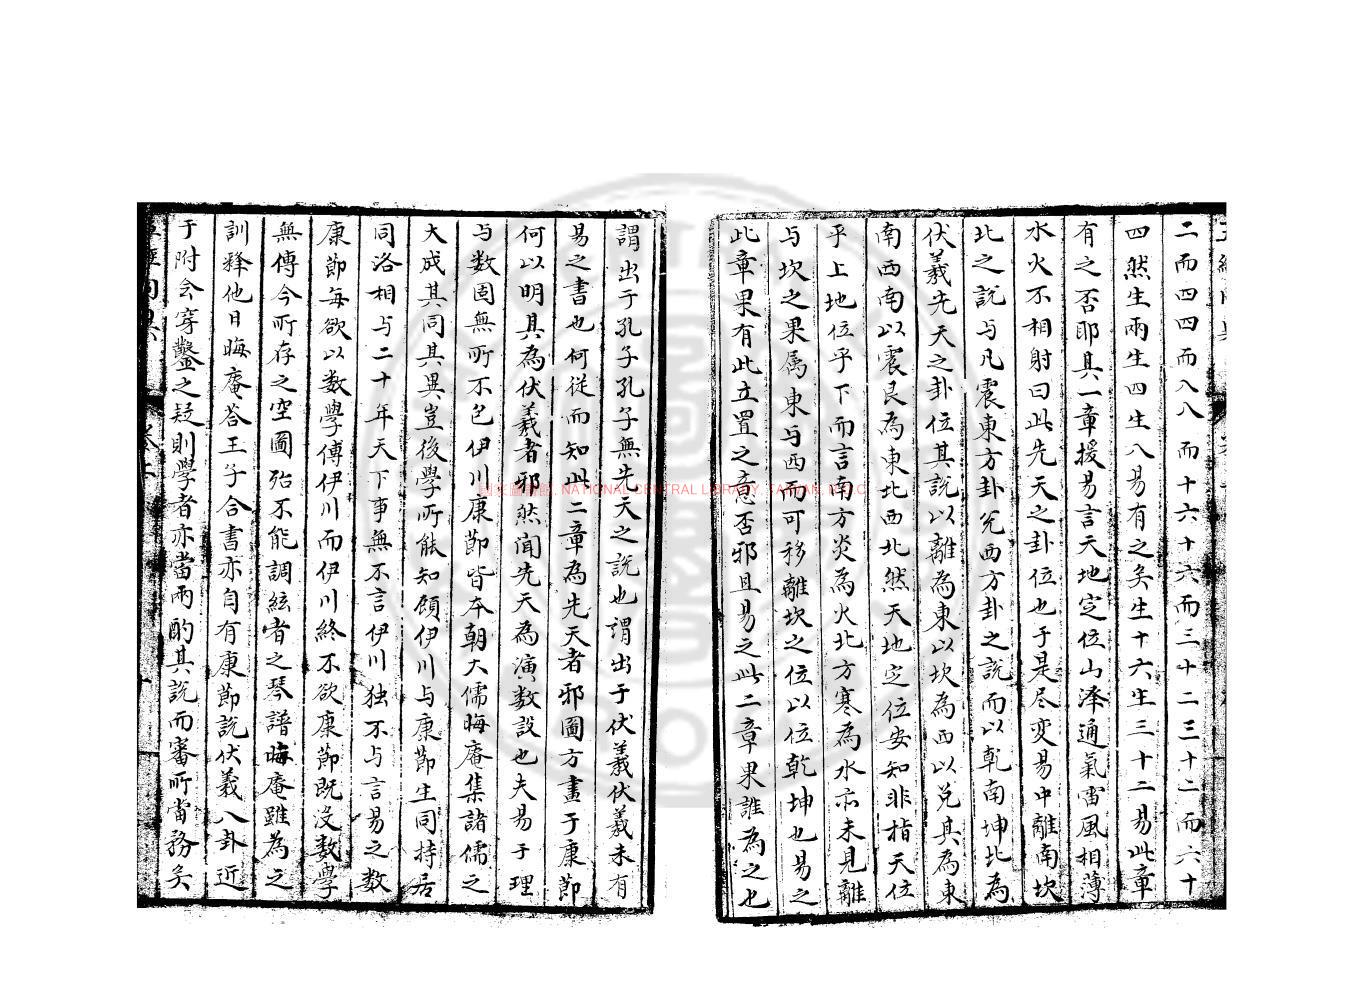 二而四四而八八而十六十六而三十二三十二而六十
四然生兩生四生八易有之矣生十六生三十二易此章
有之否耶其一章援易言天地定位山澤通氣雷風相薄
水火不相射曰此先天之卦位也于是尽变易中離南坎
北之說与凡震東方卦兌西方卦之說而以乾南坤北為
伏羲先天之卦位其說以離為東以坎為西以兌其為東
南西南以震艮為東北西北然天地定位安知非指天位
乎上地位乎下而言南方炎為火北方寒為水亦未見離
与坎之果属東与西而可移離坎之位以位乾坤也易之
此章果有此立置之意否邪且易之此二章果誰為之也
謂出于孔子孔子無先天之說也謂出于伏羲伏羲未有
易之書也何從而知此二章為先天者邪圖方畫于康節
何以明其為伏羲者邪然闻先天為演数設也夫易于理
与数固無所不包伊川康節皆本朝大儒晦庵集諸儒之
大成其同其異豈後學所能知顧伊川与康節生同持居
同洛相与二十年天下事無不言伊川独不与言易之数
康節每欲以数學傳伊川而伊川終不欲康節既没数學
無傳今所存之空圖殆不能調絃者之琴譜晦庵雖為之
訓释他日晦庵荅王子合書亦自有康節說伏羲八卦近
于附会穿鑿之疑則學者亦當兩酌其說而審所當務矣